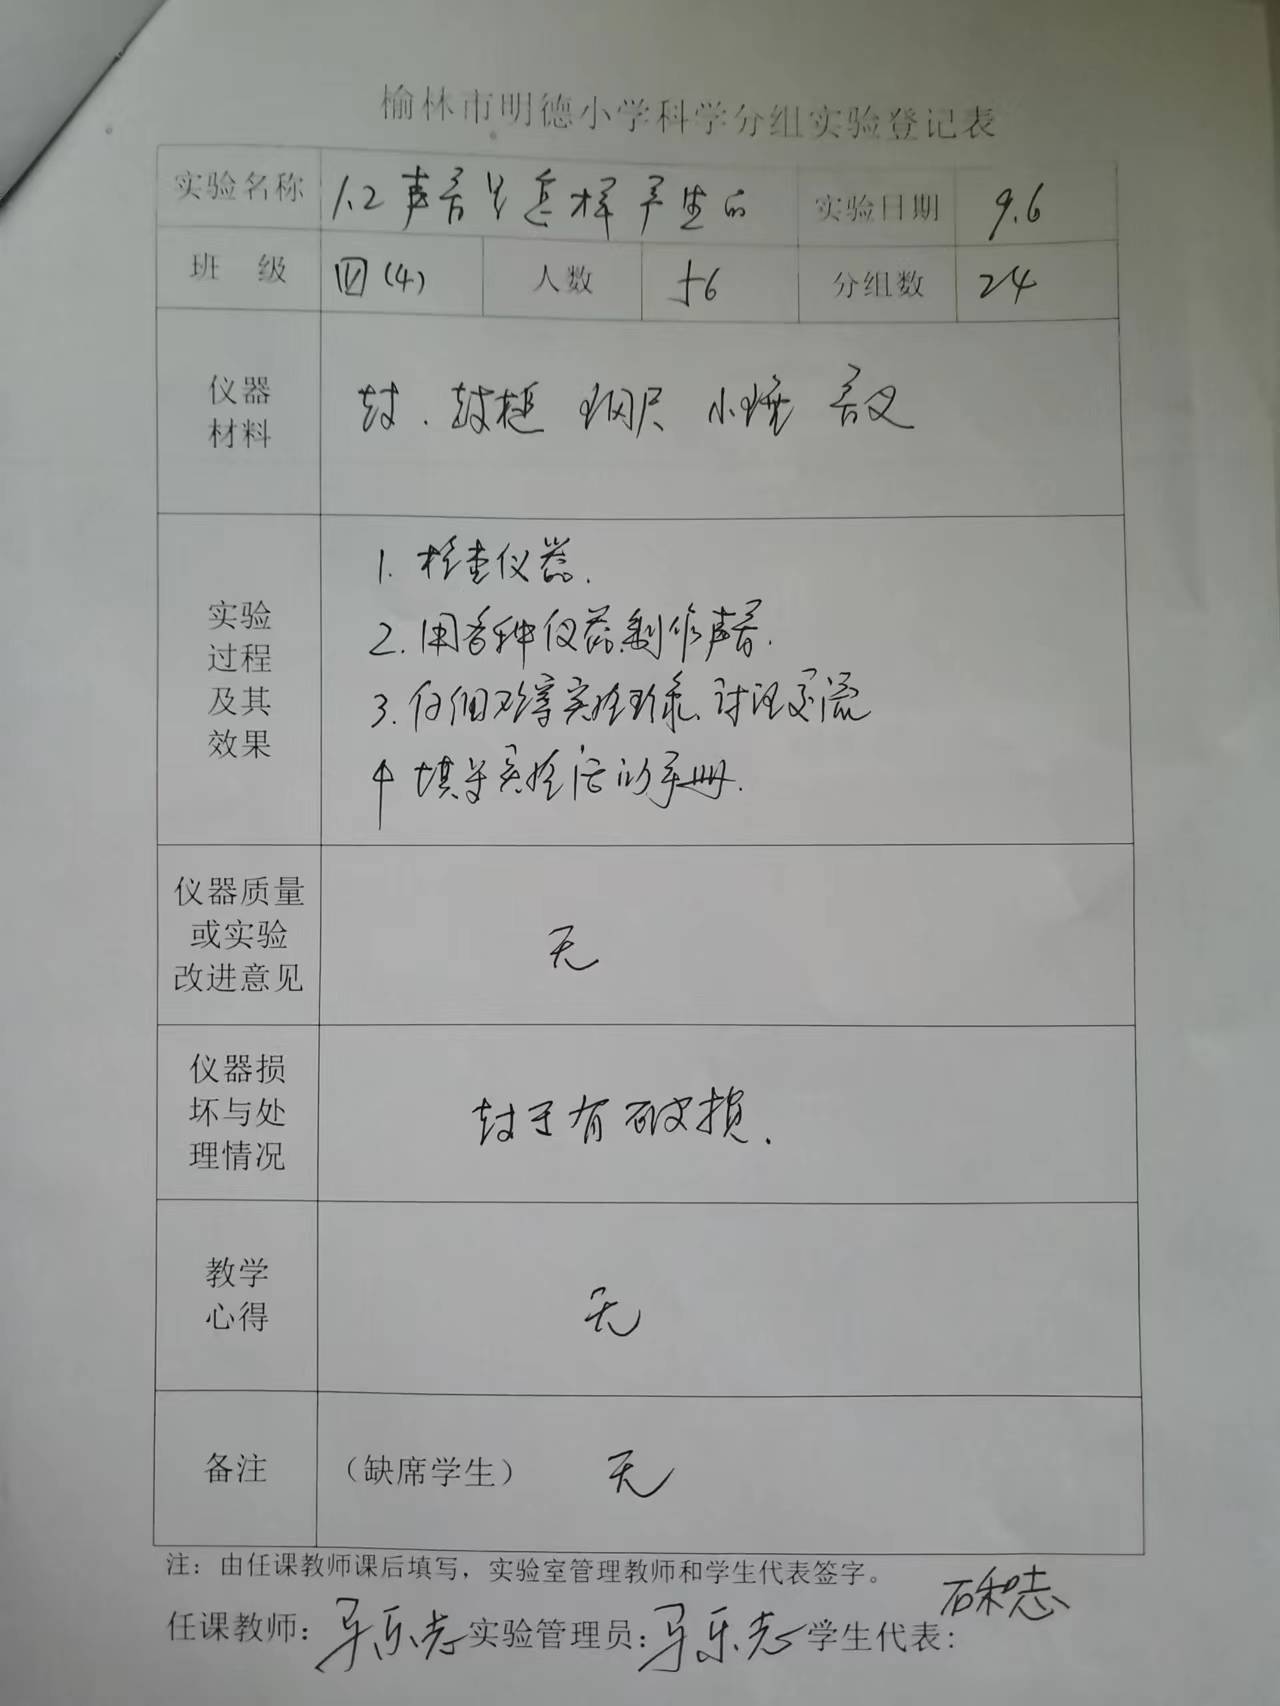 榆林市明德小学科学分组实验登记表
实验名称 1.2声音是怎样产生的 实验日期 9.6
班 级 四(4) 人数 56 分组数 24
仪器
材料
鼓.鼓槌 钢尺 小锤 音叉
实验
过程
及其
效果
1.检查仪器.
2.用各种仪器制作声音.
3.仔细观察实验现象、讨论交流
4 填写实验活动手册.
仪器质量
或实验
改进意见
无
仪器损
坏与处
理情况
鼓子有破损.
教学
心得
无
备注 （缺席学生） 无
注：由任课教师课后填写，实验室管理教师和学生代表签字。
任课教师：马乐志 实验管理员：马乐志 学生代表：石和志